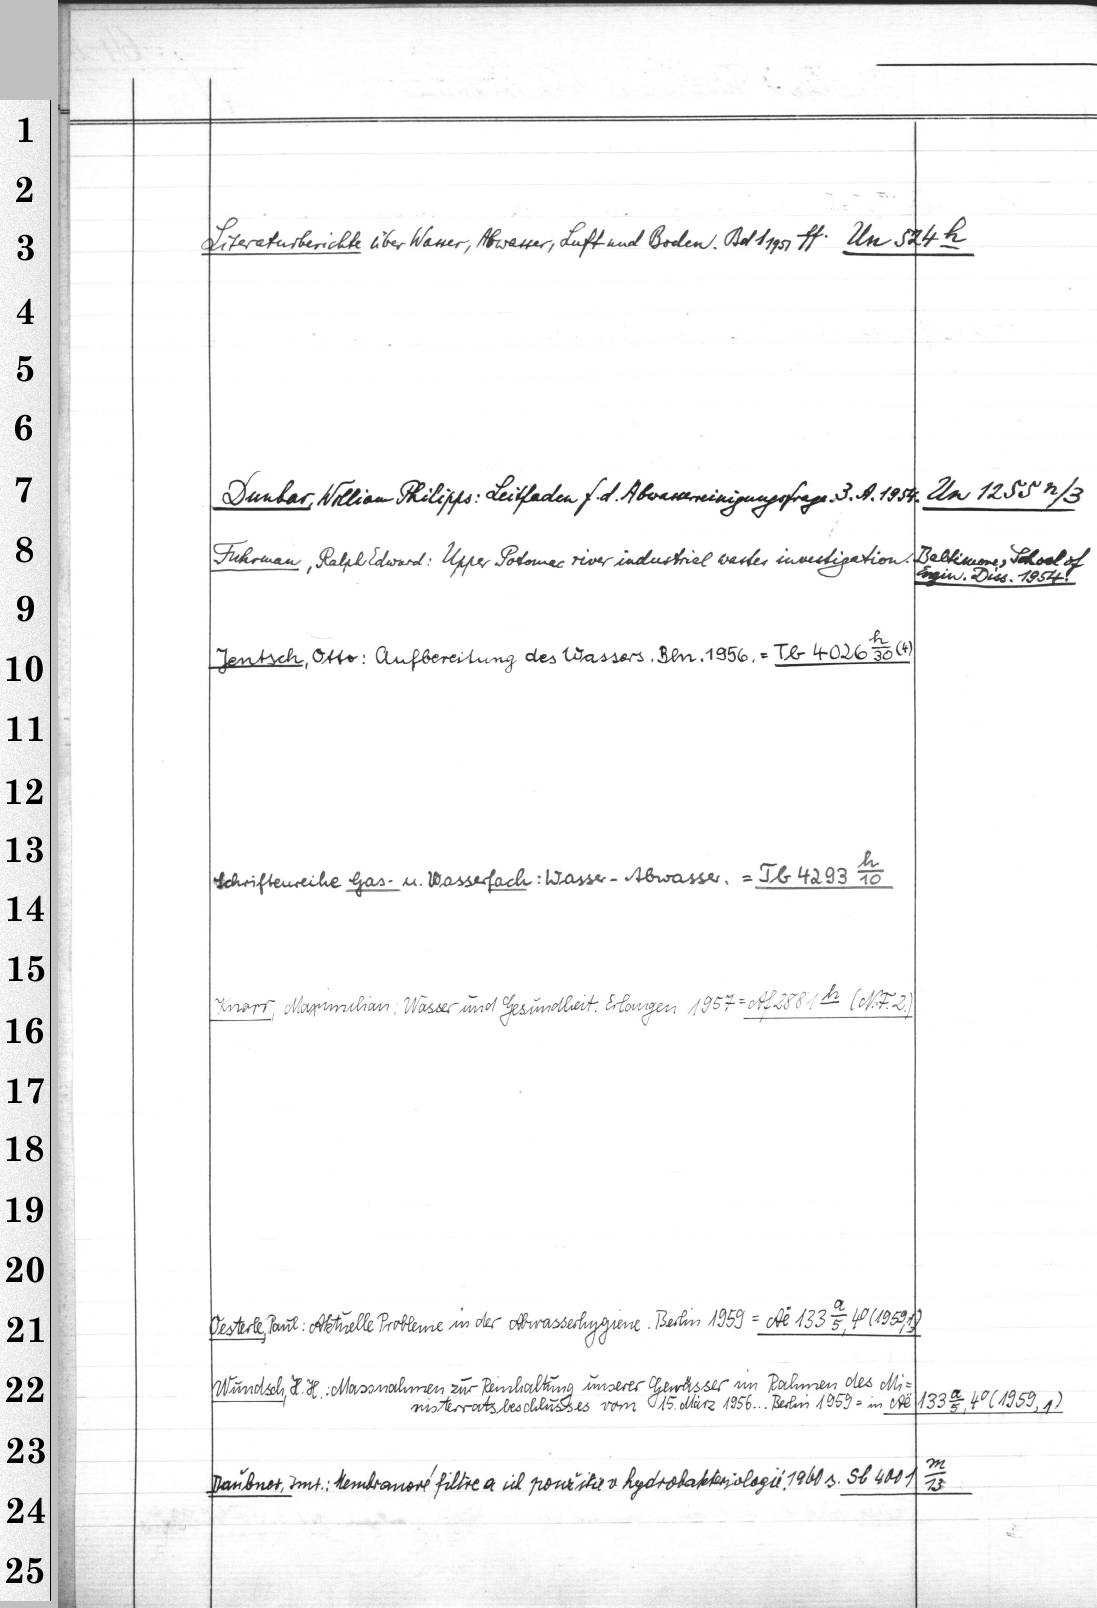 1
2
3
Literaturberichte über Wasser, Abwasser, Luft und Boden. Bd 1 1951 ff. Un 524 h
4
5
6
7
Dunbar, William Philipps: Leitfaden f. d. Abwasserreinigungsfrage. 3. A. 1954. Un 1255 n/3
8
Fuhrman, Ralph Edward: Upper Potomac river industrial wastes investigation. Baltimore, School of
Engin. Diss. 1954.
9
10
Jentsch, Otto: Aufbereitung des Wassers. Bln. 1956. = Tb 4026 h/30 (4)
11
12
13
Schriftenreihe Gas- u. Wasserfach: Wasser - Abwasser. = Tb 4293 h/10
14
15
Knorr, Maximilian: Wasser und Gesundheit. Erlangen 1957 = Af 2881 h (N.F. 2.)
16
17
18
19
20
21
Oesterle, Paul: Aktuelle Probleme in der Abwasserhygiene. Berlin 1959 = Aë 133 a/5, 4° (1959,
22
Wundsch, H. H.: Massnahmen zur Reinhaltung unserer Gewässer im Rahmen des Mi=
nisterratsbeschlusses vom 15. März 1956... Berlin 1959 = in Aë 133 a/5, 4° (1959, 1)
23
Daubner, : Membranové filtre a ich použitie v hydrobakteriologii. 1960 s. Sb 4001 m/13
24
25